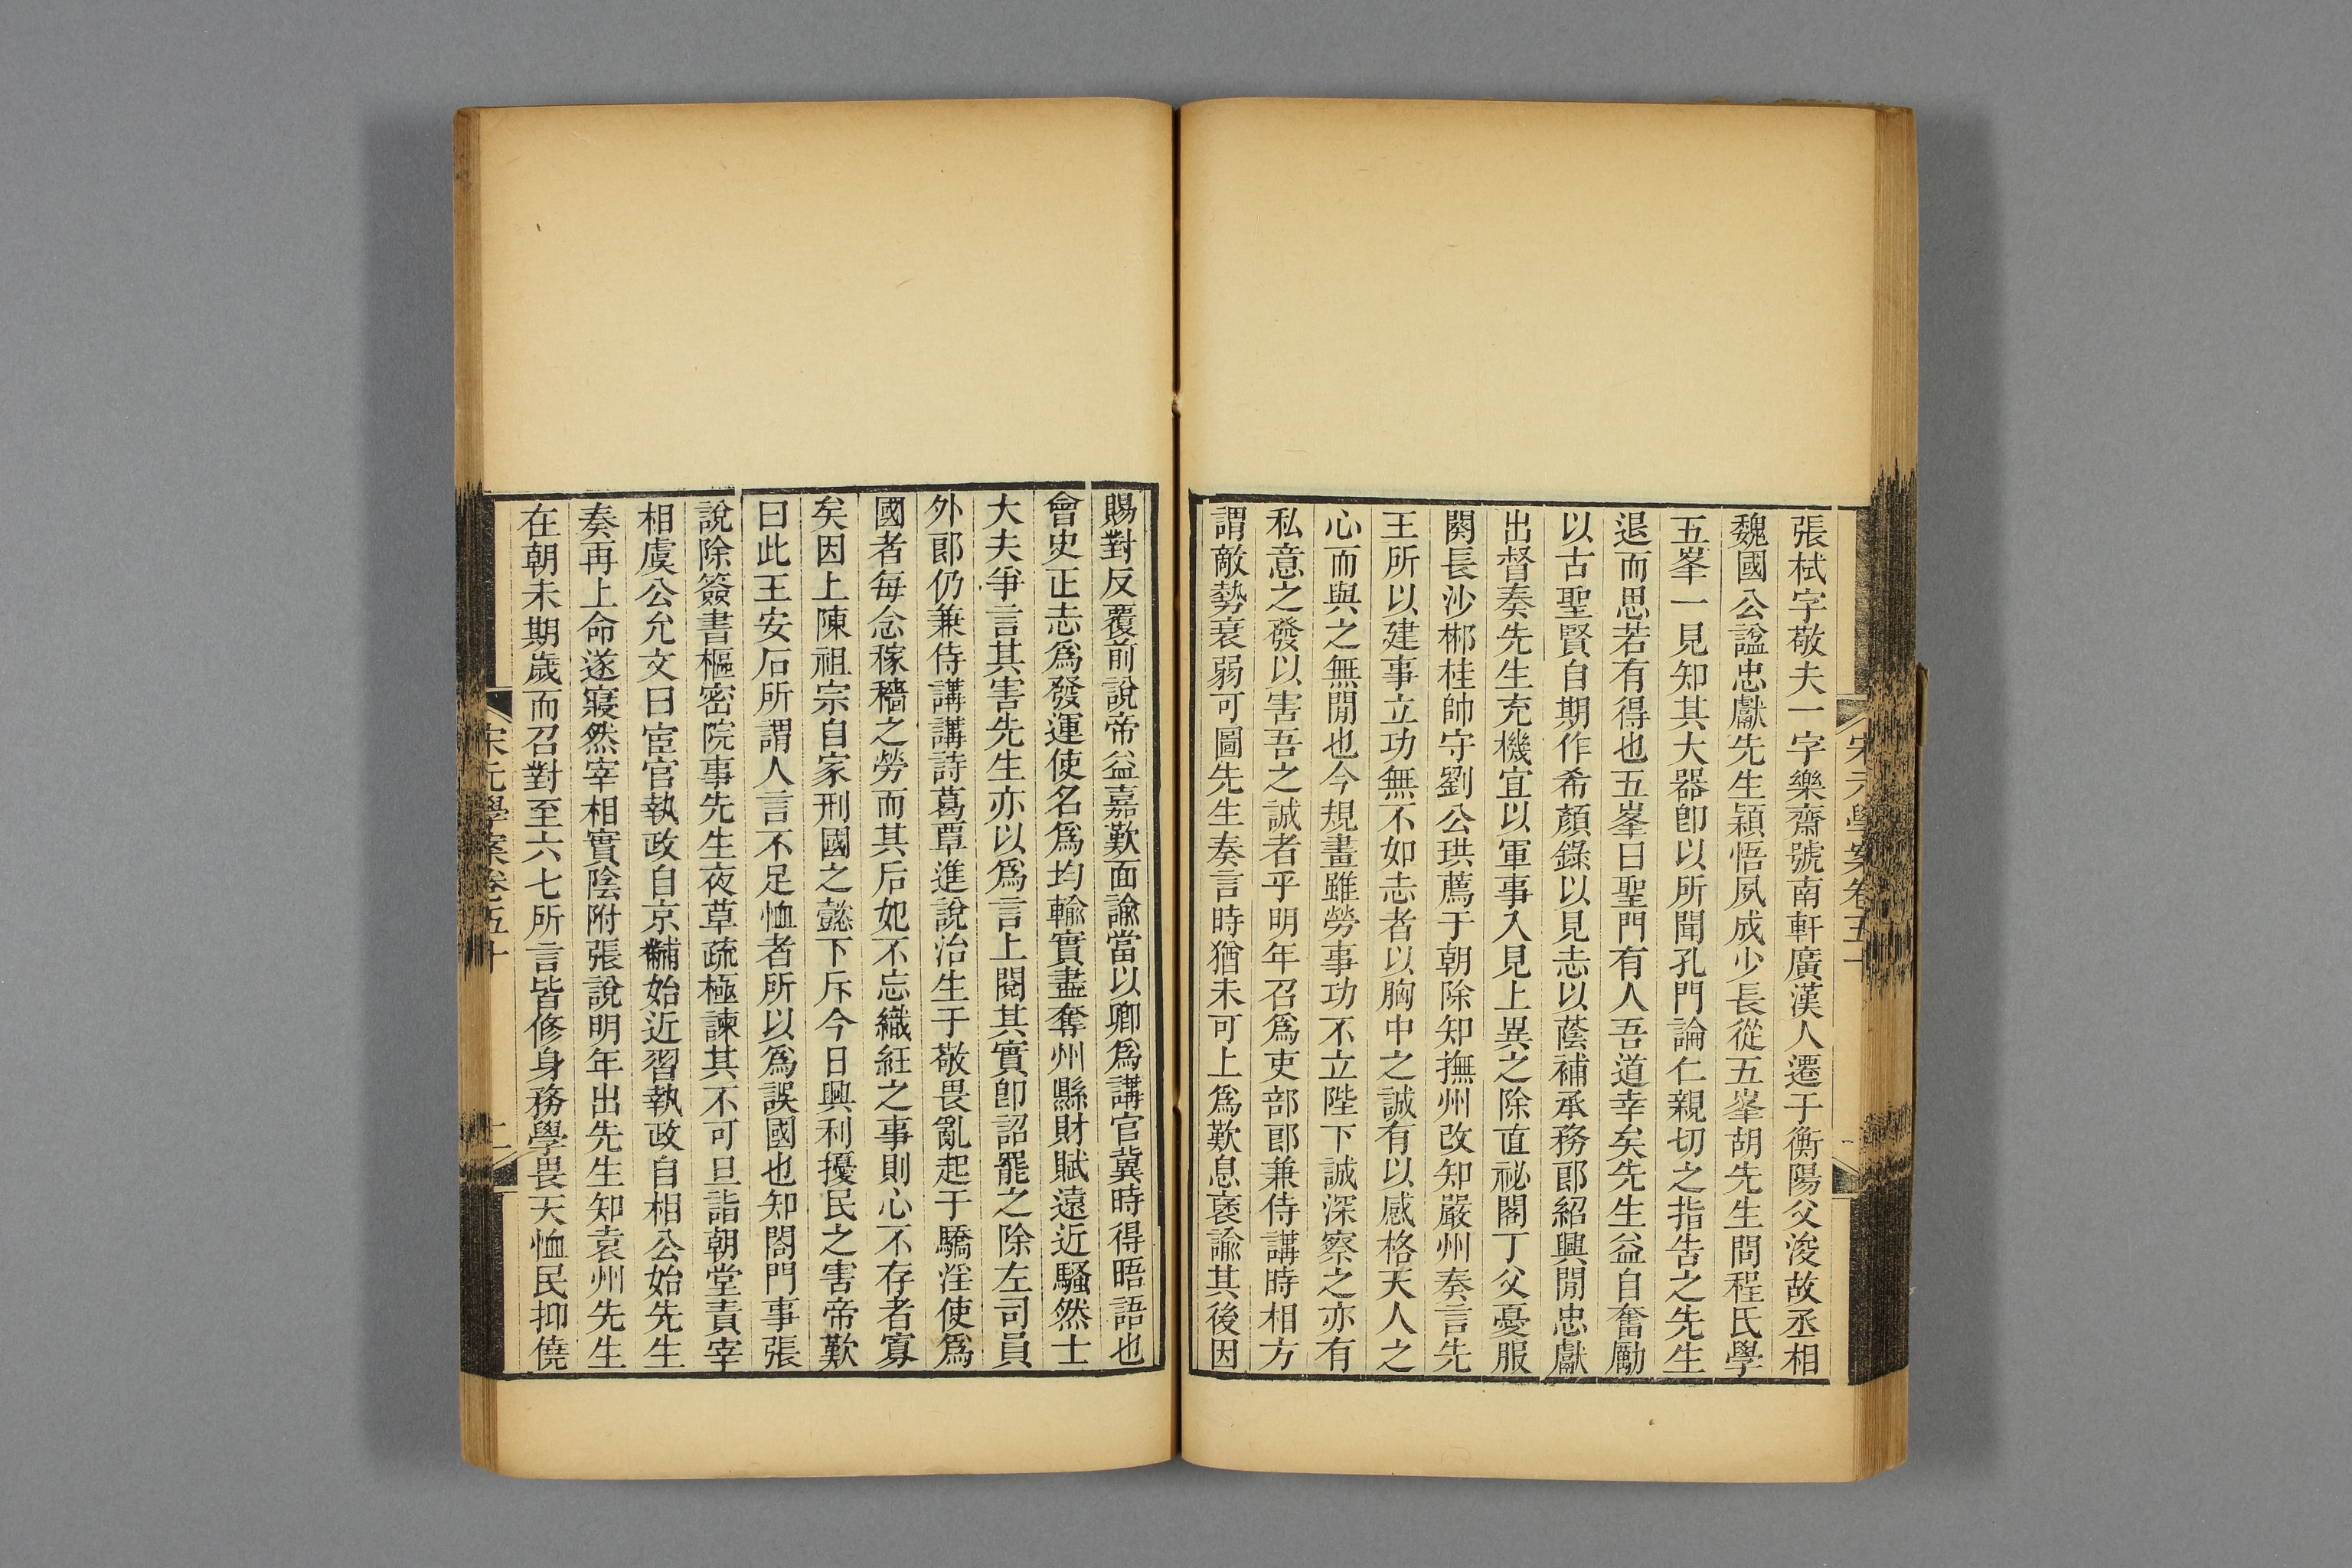 張栻字敬夫一字樂齋號南軒廣漢人遷于衡陽父浚故丞相
魏國公諡忠獻先生穎悟夙成少長從五峯胡先生問程氏學
五峯一見知其大器卽以所聞孔門論仁親切之指告之先生
退而思若有得也五峯曰聖門有人吾道幸矣先生益自奮勵
以古聖賢自期作希顏錄以見志以蔭補承務郎紹興閒忠獻
出督奏先生充機宜以軍事入見上異之除直祕閣丁父憂服
闋長沙郴桂帥守劉公珙薦于朝除知撫州改知嚴州奏言先
王所以建事立功無不如志者以胸中之誠有以感格天人之
心而與之無閒也今規畫雖勞事功不立陛下誠深察之亦有
私意之發以害吾之誠者乎明年召爲吏部郎兼侍講時相方
謂敵勢衰弱可圖先生奏言時猶未可上爲歎息襃諭其後因
賜對反覆前說帝益嘉歎面諭當以卿爲講官冀時得晤語也
會史正志爲發運使名爲均輸實盡奪州縣財賦遠近騷然士
大夫爭言其害先生亦以爲言上閱其實卽詔罷之除左司員
外郎仍兼侍講講詩葛覃進說治生于敬畏亂起于驕淫使爲
國者每念稼穡之勞而其后妃不忘織紝之事則心不存者寡
矣因上陳祖宗自家刑國之懿下斥今日興利擾民之害帝歎
曰此王安石所謂人言不足恤者所以爲誤國也知閤門事張
說除簽書樞密院事先生夜草疏極諫其不可旦詣朝堂責宰
相虞公允文曰宦官執政自京黼始近習執政自相公始先生
奏再上命遂寢然宰相實陰附張說明年出先生知袁州先生
在朝未期歲而召對至六七所言皆修身務學畏天恤民抑僥
宋元學案卷五十
二